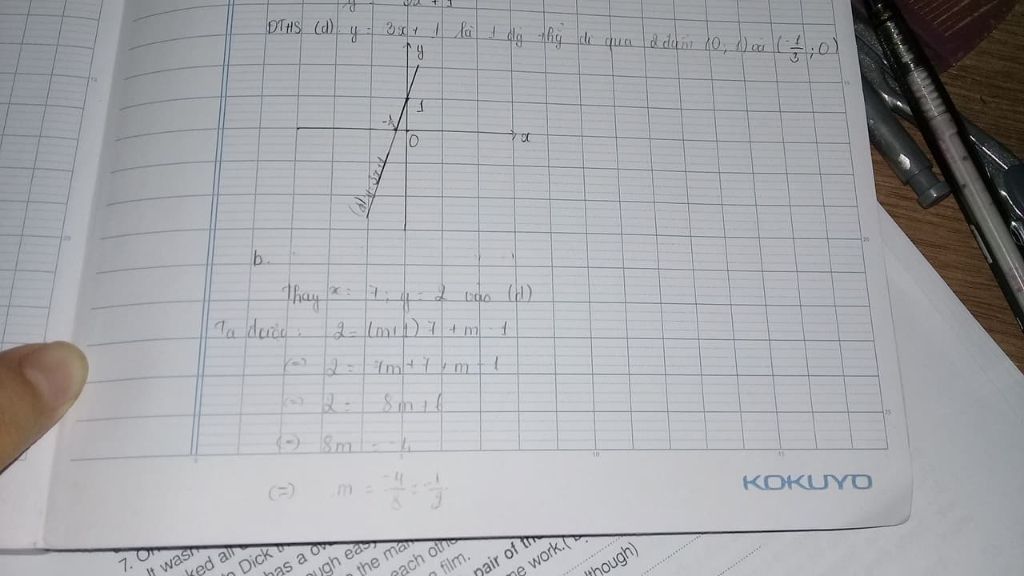 y = 3x + 1
ĐTHS (d) y = 3x + 1 là 1 đg thg đi qua 2 điểm (0, 1) và (-1/3; 0)
y
1
-1
O
x
(d) y = 3x+1
b.
Thay x = 7; y = 2 vào (d)
Ta được: 2 = (m+1) 7 + m - 1
(=) 2 = 7m + 7 + m - 1
(=) 2 = 8m + 6
(=) 8m = -4
(=) m = -4/8 = -1/2
KOKUYO
7. O
It wasn
ked all
Dick
has a
ough easy
the man
each othe
film.
pair of the
me work.(
lthough)